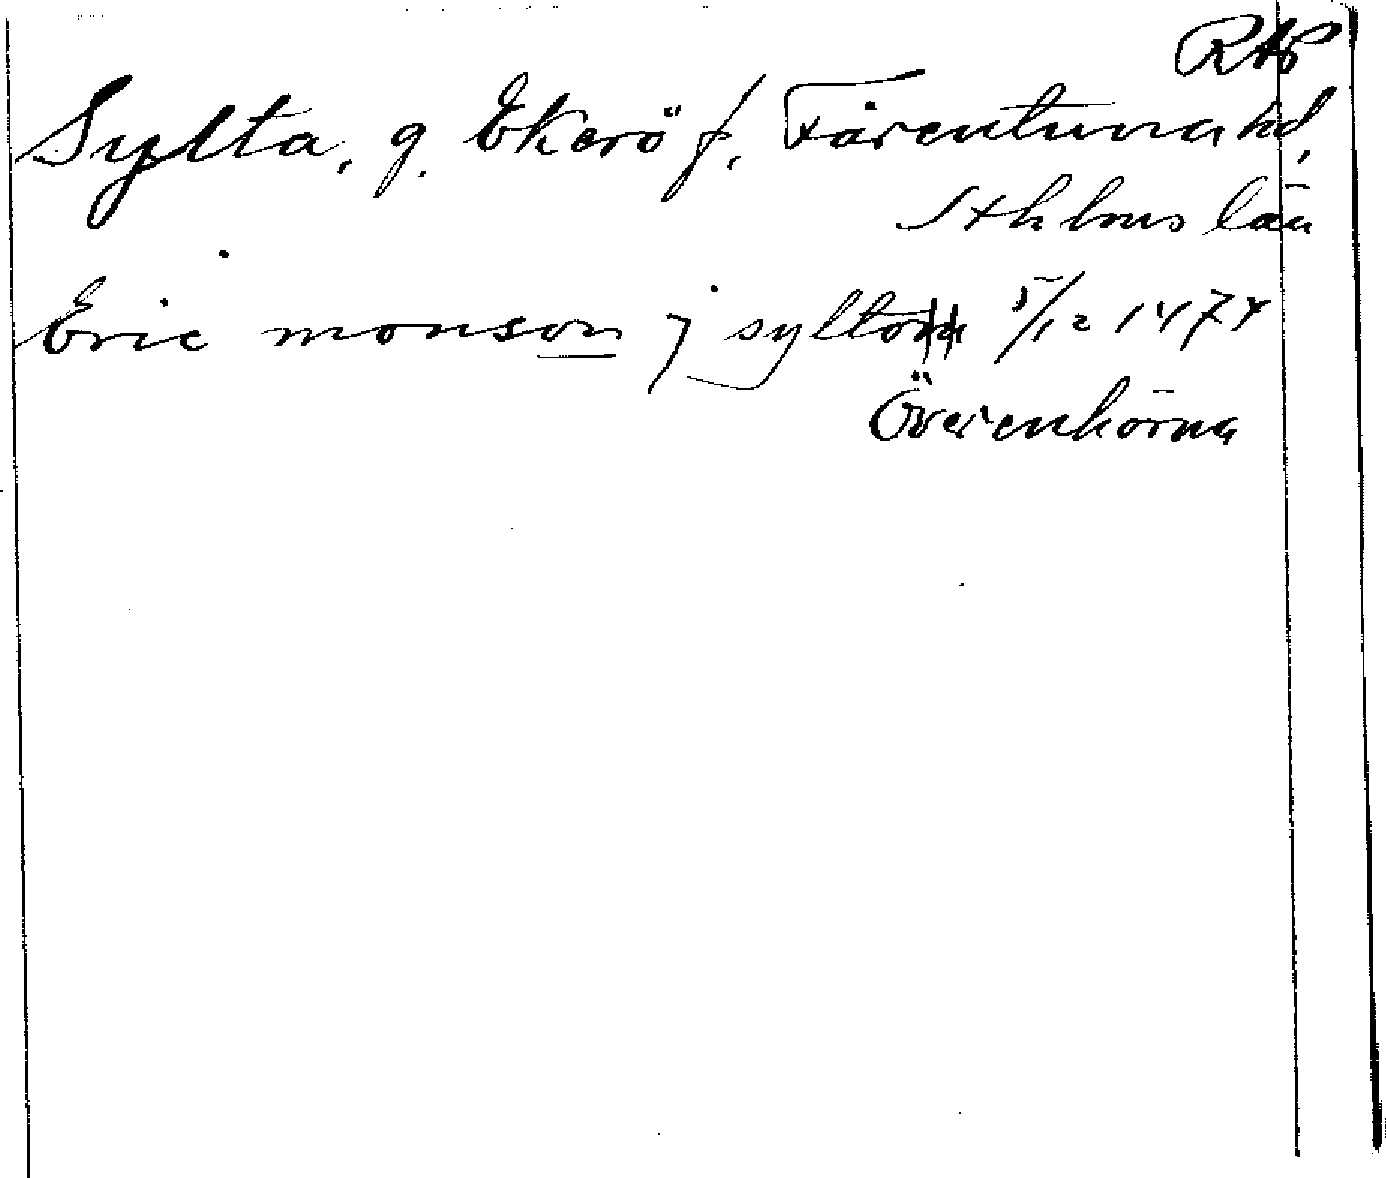 RAP
Sylta, g. Ekerö f. Färentuna hd,
Sthlms län
Eric monson j syltom 5/12 1474
Överenhörna